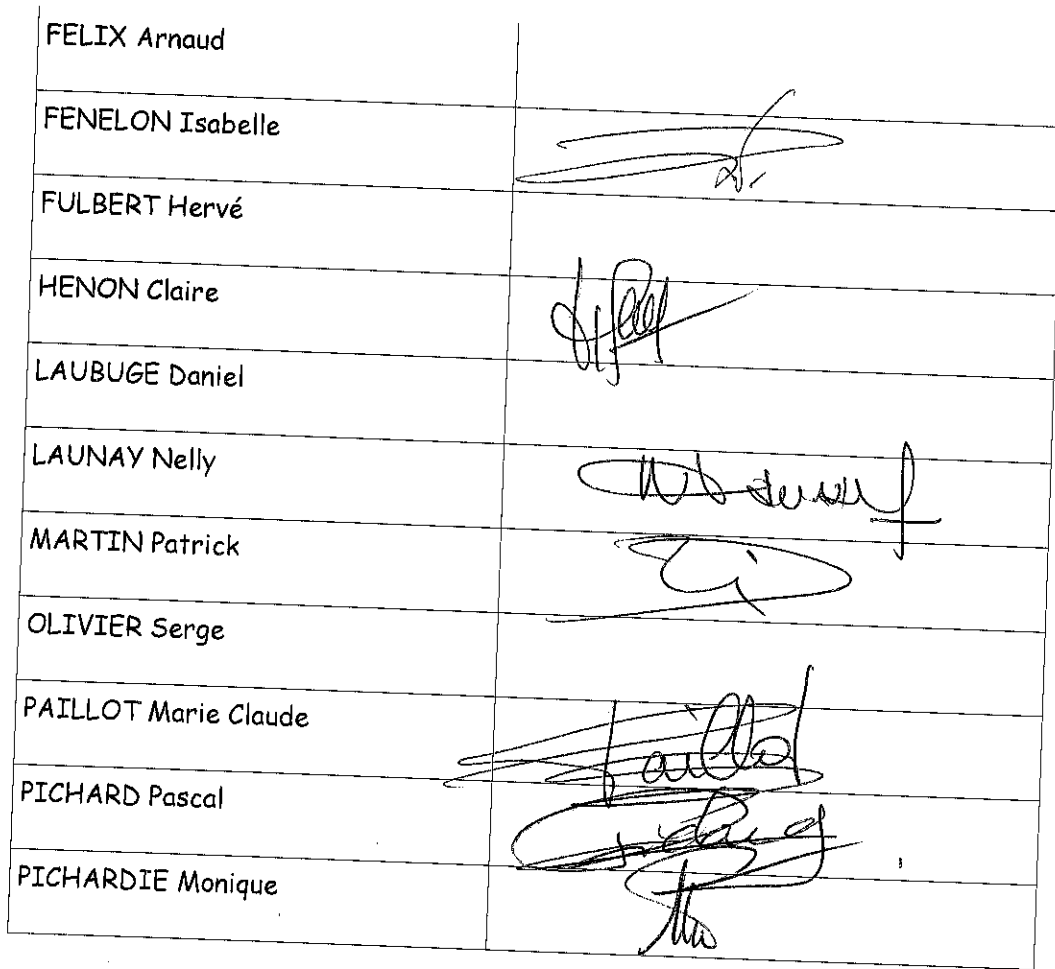 FELIX Arnaud
FENELON Isabelle
FULBERT Hervé
HENON Claire
LAUBUGE Daniel
LAUNAY Nelly
MARTIN Patrick
OLIVIER Serge
PAILLOT Marie Claude
PICHARD Pascal
PICHARDIE Monique